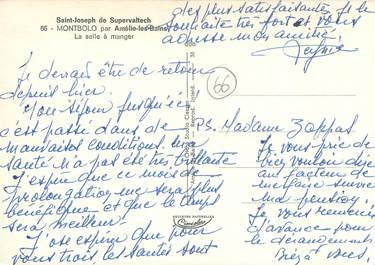 Saint-Joseph de Supervaltech
66 - MONTBOLO par Amélie-les-Bains
La salle à manger
Je devrais être de retour
depuis hier.
Mon séjour jusqu'ici
c'est passé dans de
mauvaises conditions. Ma
santé n'a pas été très brillante
J'espère que ce mois de
prolongation me sera plus
bénéfique et que le temps
sera meilleur.
J'ose espérer que pour
vous trois, les santés sont
des plus satisfaisantes. Je le
souhaite très fort et vous
adresse mon amitié.
66
P.S. Madame Zappas
Je vous prie de
bien vouloir dire
au facteur de
me faire suivre
ma pension.
Je vous remercie
d'avance pour
le dérangement